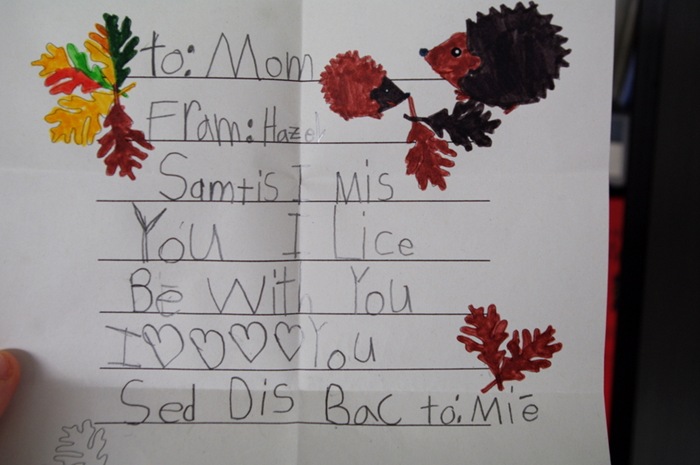 to: Mom
Fram: Hazel
Samtis I mis
You I Lice
Bē With You
I ♡♡♡♡ You
Sed Dis Bac to: Miē